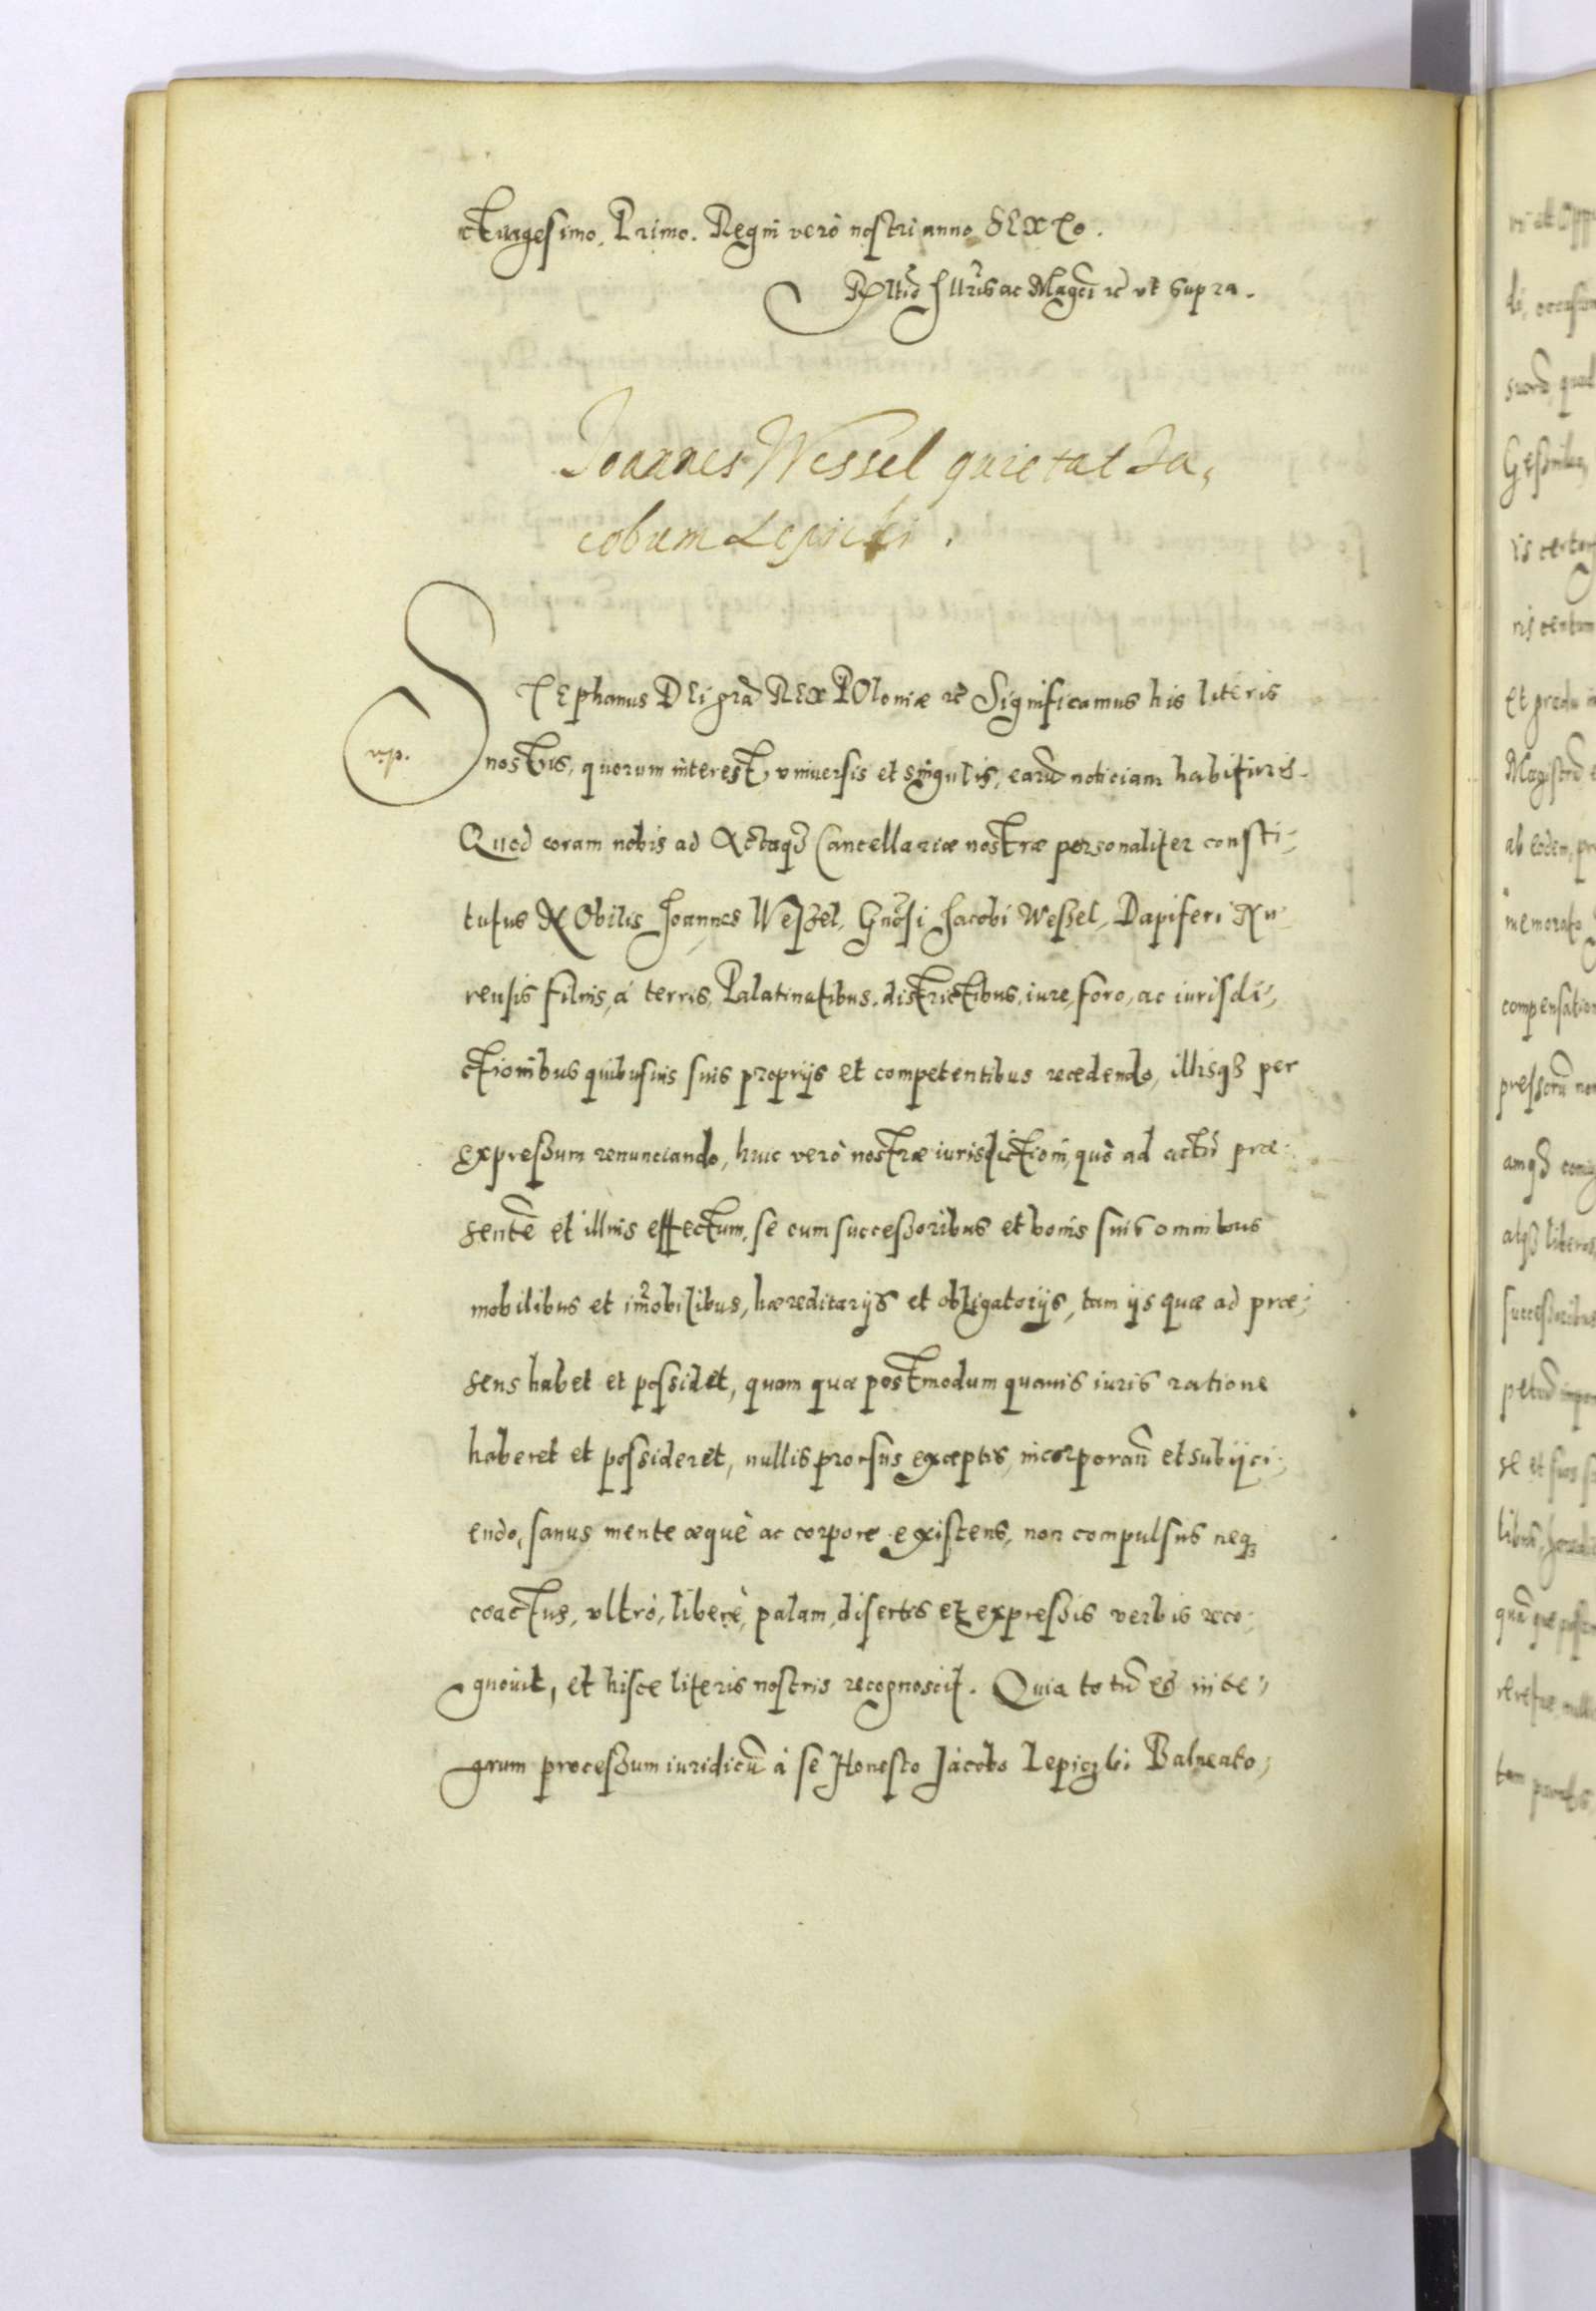 ctuagesimo, Primo. Regni verò nostri anno SEXTo.
Rltio Illris ac Magci rc vt supra.
Joannes Wessel quietat Ja,
cobum Lepicki.
STEphanus DEi gra REX POloniæ rc Significamus his literis
nostris, quorum interest, vniuersis et singulis, earũ noticiam habituris.
vp.
Quod coram nobis ad Actaqȝ Cancellariæ nostræ personaliter consti-
tutus NObilis Joannes Weßel, Gnosi Jacobi Weßel, Dapiferi Nu-
rensis filius, à terris, Palatinatibus, districtibus, iure, foro, ac iurisdi-
ctionibus quibusuis suis proprijs et competentibus recedendo, illisqȝ per
expreßum renunciando, huic verò nostræ iurisdictioni, quò ad actũ præ-
sentẽ et illius effectum, se cum succeßoribus et bonis suis omnibus
mobilibus et imobilibus, hæreditarijs et obligatorijs, tam ijs quæ ad præ-
sens habet et possidet, quam quæ postmodum quouis iuris ratione
haberet et possideret, nullis prorsus exceptis, incorporañ et subijci-
endo, sanus mente æquè ac corpore existens, non compulsus neqȝ
coactus, vltrò, liberè, palam, disertis et expreßis verbis reco-
gnouit, et hisce literis nostris recognoscit. Quia totũ et inte-
grum proceßum iuridicũ à se Honesto Jacobo Lepiczki Balneato-